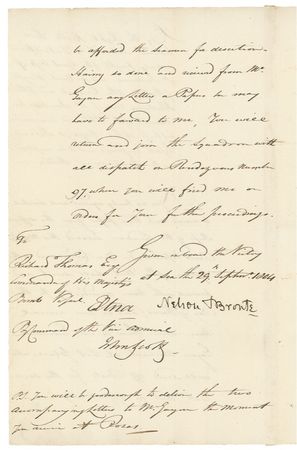 be afforded the Seamen for desertion.
Having so done and received from Mr.
Gayner any Letters or Papers he may
have to forward to me, You will
return and join the Squadron with
all dispatch on Rendezvous Number
97. where you will find me or
orders for your further proceedings.
Given on board the Victory
at Sea the 29th Septemr. 1804
To
Richard Thomas Esqr
Commander of His Majesty's
Bomb Vessel Etna
Nelson & Bronte
By Command of the Vice Admiral
John Scott
P.S. You will be so good to deliver the two
accompanying Letters to Mr. Gayner the moment
you arrive at Rosas.